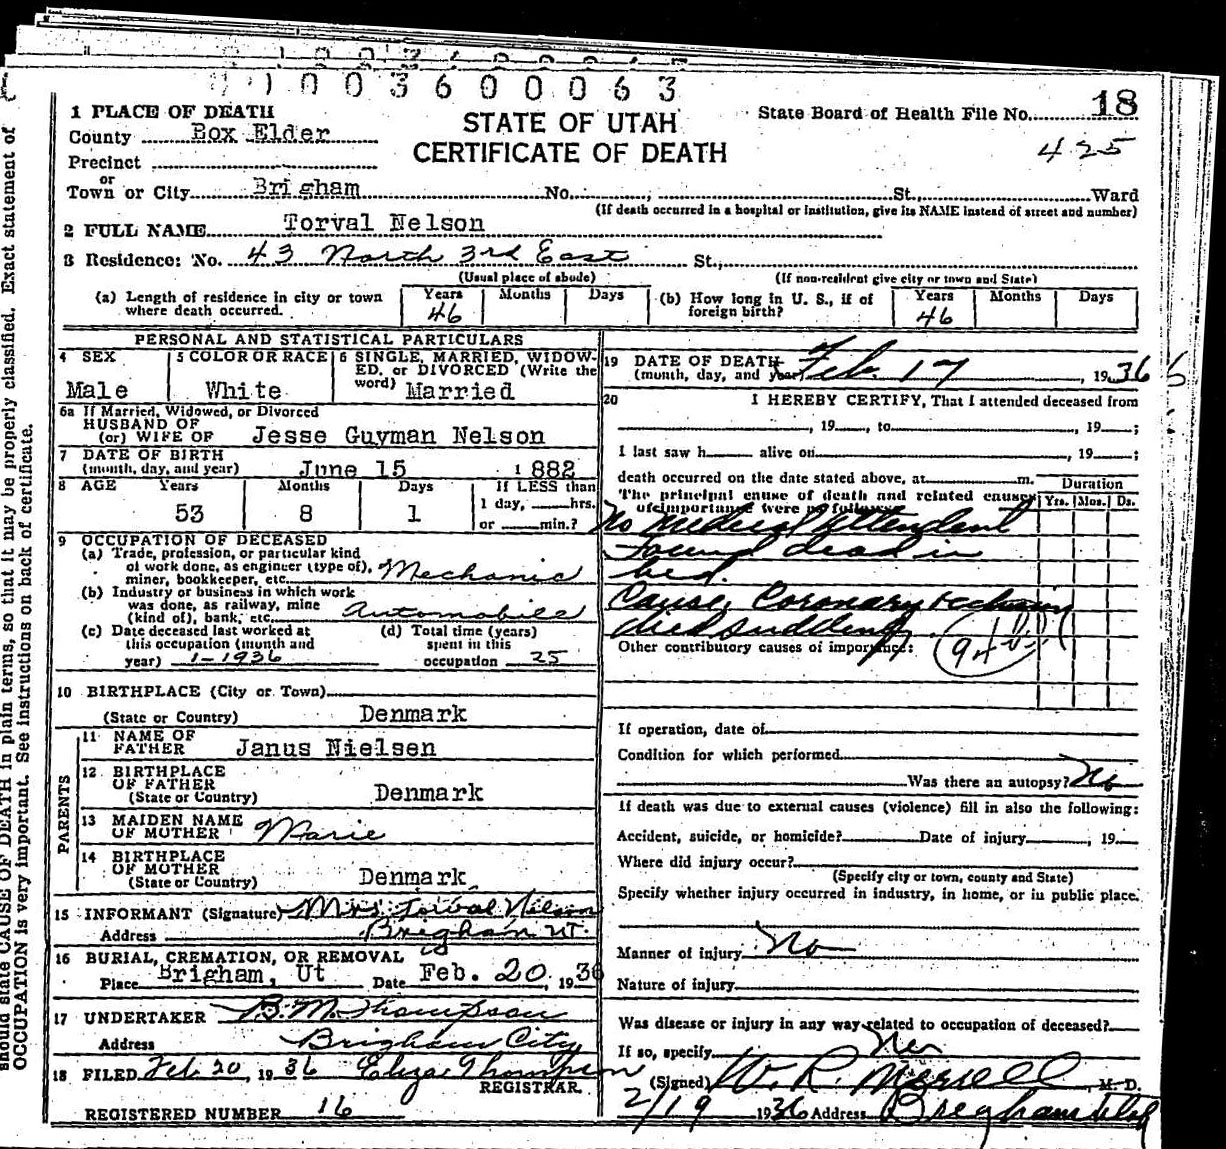 1 0 0 3 6 0 0 0 6 3
1 PLACE OF DEATH
County Box Elder
Precinct
or
Town or City Brigham No. St. Ward
STATE OF UTAH
CERTIFICATE OF DEATH
State Board of Health File No. 18
425
(If death occurred in a hospital or institution, give its NAME instead of street and number)
2 FULL NAME Torval Nelson
3 Residence: No. 43 North 3rd East St.,
(Usual place of abode) (If non-resident give city or town and State)
(a) Length of residence in city or town where death occurred. Years 46 Months Days
(b) How long in U. S., if of foreign birth? Years 46 Months Days
PERSONAL AND STATISTICAL PARTICULARS
4 SEX Male
5 COLOR OR RACE White
6 SINGLE, MARRIED, WIDOWED, or DIVORCED (Write the word) Married
6a If Married, Widowed, or Divorced
HUSBAND OF
(or) WIFE OF Jesse Guyman Nelson
7 DATE OF BIRTH
(month, day, and year) June 15 1882
8 AGE Years 53 Months 8 Days 1
If LESS than
1 day, hrs.
or min.?
9 OCCUPATION OF DECEASED
(a) Trade, profession, or particular kind
of work done, as engineer (type of),
miner, bookkeeper, etc. Mechanic
(b) Industry or business in which work
was done, as railway, mine
(kind of), bank, etc. Automobile
(c) Date deceased last worked at
this occupation (month and
year) 1-1936
(d) Total time (years)
spent in this
occupation 25
10 BIRTHPLACE (City or Town)
(State or Country) Denmark
PARENTS
11 NAME OF
FATHER Janus Nielsen
12 BIRTHPLACE
OF FATHER
(State or Country) Denmark
13 MAIDEN NAME
OF MOTHER Marie
14 BIRTHPLACE
OF MOTHER
(State or Country) Denmark
15 INFORMANT (Signature) Mrs. Torval Nelson
Address Brigham UT.
16 BURIAL, CREMATION, OR REMOVAL
Place Brigham, Ut Date Feb. 20, 1936
17 UNDERTAKER B. M. Thompson
Address Brigham City
18 FILED Feb 20, 1936 Eliza Thompson
REGISTRAR
REGISTERED NUMBER 16
19 DATE OF DEATH
(month, day, and year) Feb. 17, 1936
20 I HEREBY CERTIFY, That I attended deceased from
, 19 , to , 19 ;
I last saw h alive on , 19 ;
death occurred on the date stated above, at m.
The principal cause of death and related causes
of importance were as follows:
Duration
Yrs. Mos. Ds.
No Medical Attendent
Found dead in
bed.
Cause, Coronary
died suddenly.
94
Other contributory causes of importance:
If operation, date of
Condition for which performed
Was there an autopsy? No
If death was due to external causes (violence) fill in also the following:
Accident, suicide, or homicide? Date of injury , 19
Where did injury occur?
(Specify city or town, county and State)
Specify whether injury occurred in industry, in home, or in public place.
Manner of injury No
Nature of injury
Was disease or injury in any way related to occupation of deceased?
If so, specify
(Signed) W. R. Merrell, M. D.
2/19 1936 Address Brigham Utah
should state CAUSE OF DEATH in plain terms, so that it may be properly classified. Exact statement of
OCCUPATION is very important. See instructions on back of certificate.